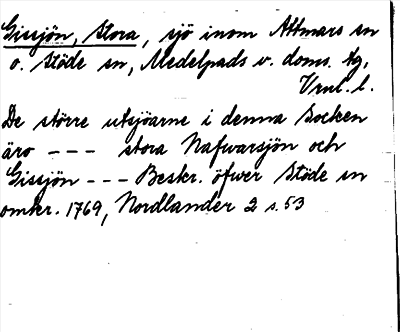 Gissjön, Stora, sjö inom Attmars sn
o. Stöde sn, Medelpads v. doms. tg,
Vrnl. l.
De större utsjöarne i denna Socken
äro --- stora Nafwarsjön och
Gissjön --- Beskr. öfwer Stöde sn
omkr. 1769, Nordlander 2 s. 53